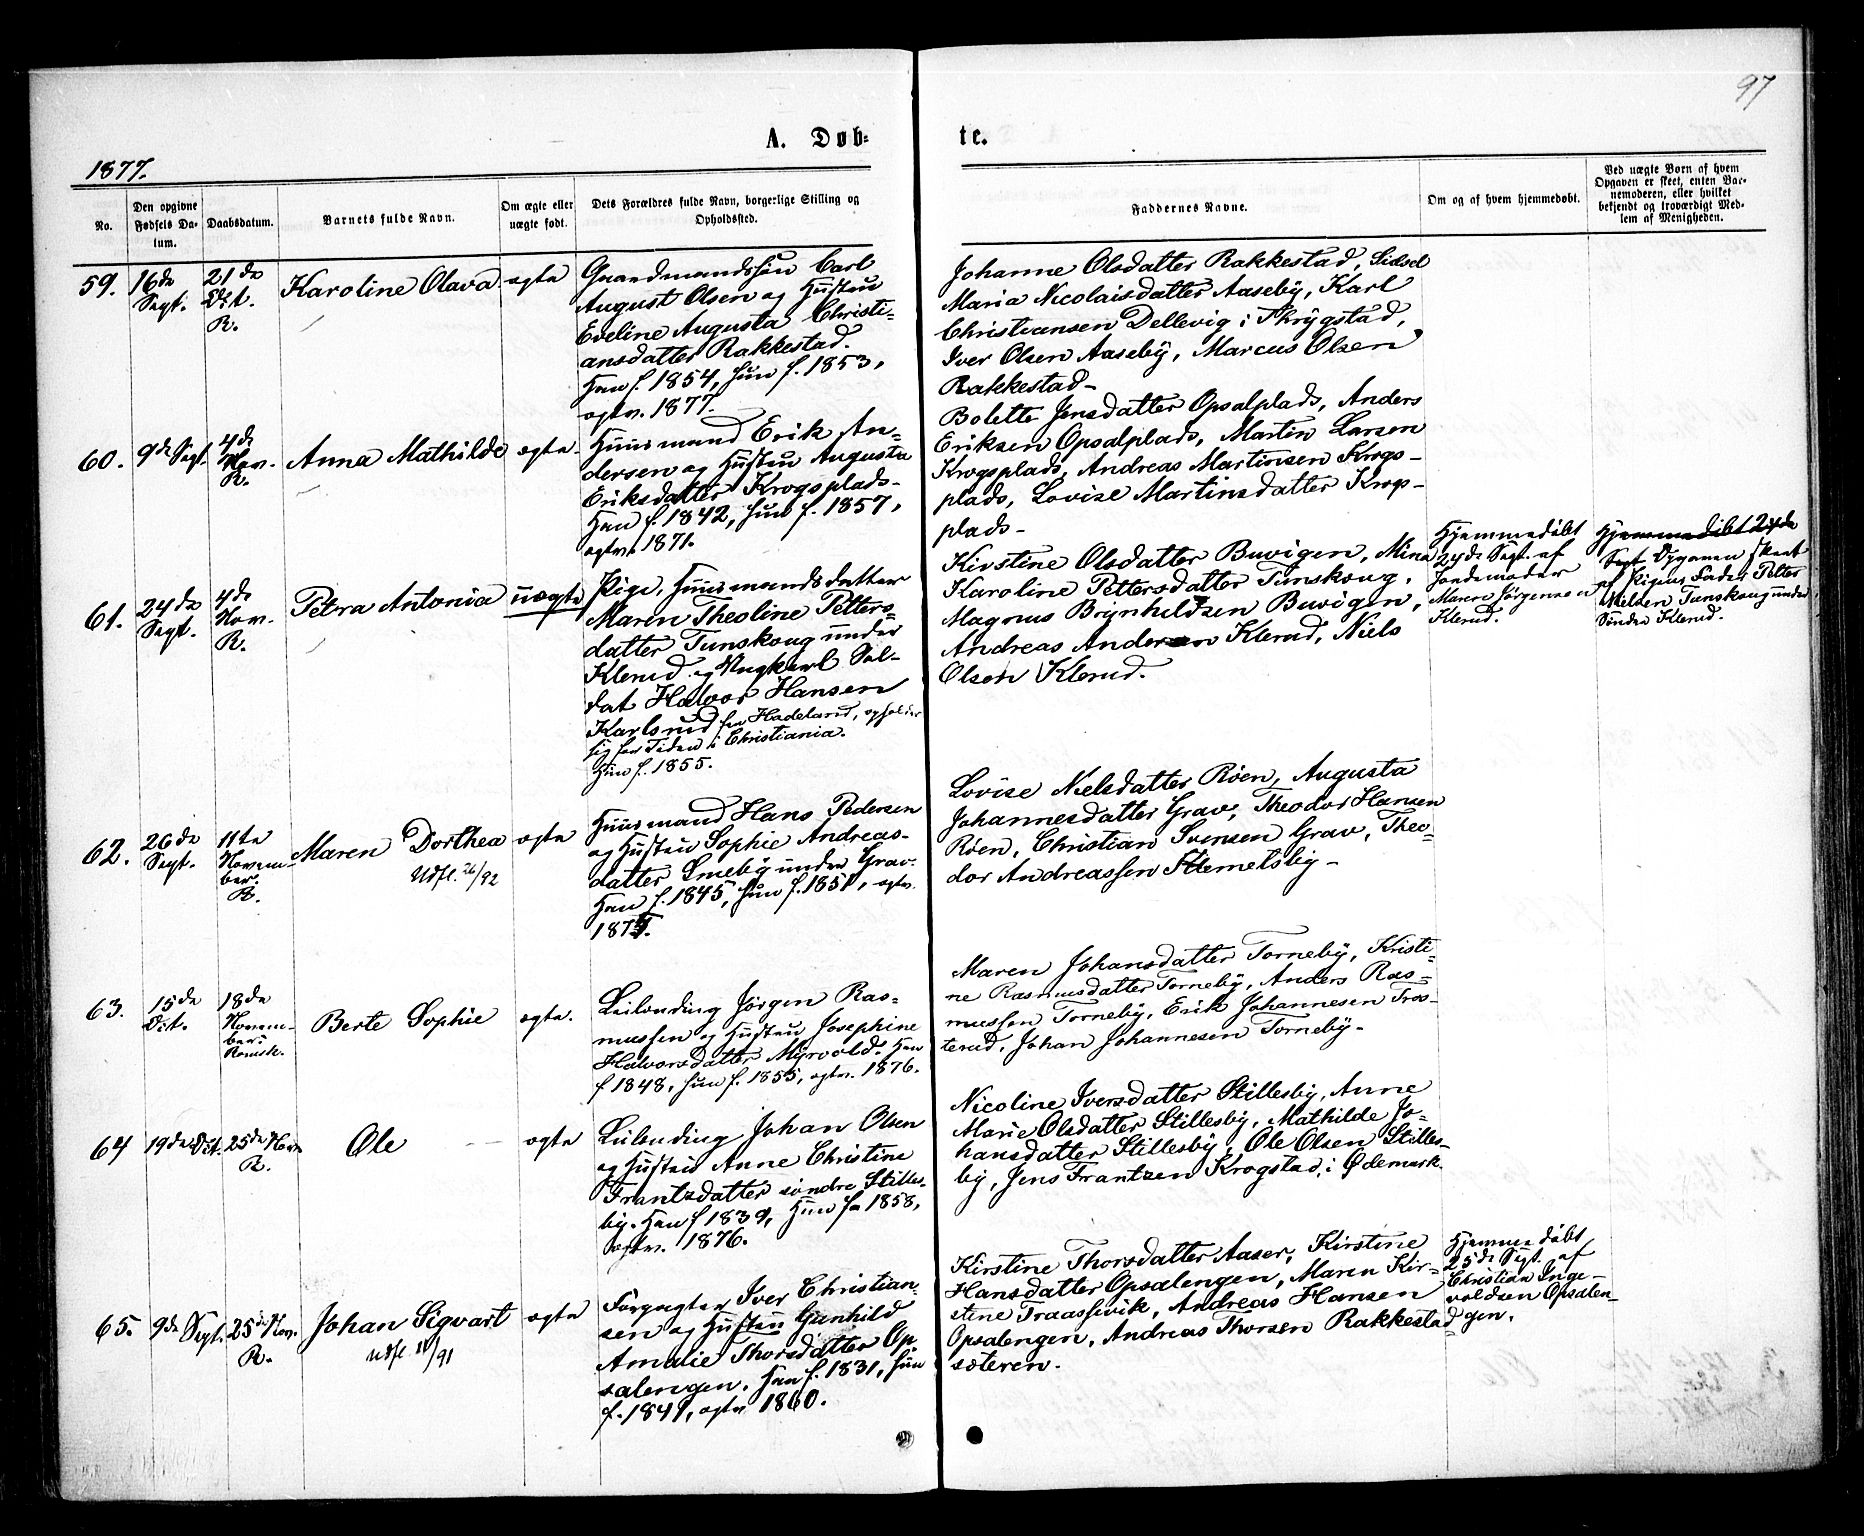 97
A. Døb-
te.
1877.
No.
Den opgivne Fødsels Da-
tum.
Daabsdatum.
Barnets fulde Navn.
Om ægte eller
uægte født.
Dets Forældres fulde Navn, borgerlige Stilling og
Opholdssted.
Faddernes Navne.
Om og af hvem hjemmedøbt.
Ved uægte Børn af hvem
Opgaven er skeet, enten Bar-
nemoderen, eller hvilket
bekjendt og troværdigt Med-
lem af Menigheden.
59.
16de
Sept.
21de
Dit.
R.
Karoline Olava
ægte
Gaardmandssøn Carl
August Olsen og Hustru
Eveline Augusta Christi-
ansdatter Rakkestad.
Han f. 1854, hun f. 1853,
egtev. 1877.
Johanne Olsdatter Rakkestad, Sidsel
Maria Nicolaisdatter Aaseby, Karl
Christiansen Dellevig i Thrygstad,
Iver Olsen Aaseby, Marcus Olsen
Rakkestad-
60.
9de Sept.
4de
Nov.
R.
Anna Mathilde
ægte.
Huusmand Erik An-
dersen og Hustru Augusta
Eriksdatter Krogsplads-
Han f. 1842, hun f. 1857,
egtv. 1871.
Bolette Jensdatter Opsalplads, Anders
Eriksen Opsalplads, Martin Larsen
Krogsplads, Andreas Martinsen Krogs-
plads, Lovise Martinsdatter Krogs-
plads-
61.
24de
Sept.
4de
Nov.
R.
Petra Antonia
uægte
Pige, Huusmandsdatter
Maren Theoline Petters-
datter Tunskoug under
Klerud og Ungkarl Sol-
dat Halvor Hansen
Karlsrud fra Hadeland, opholder
sig for Tiden i Christiania.
Hun f. 1855.
Kirstine Olsdatter Buvigen, Mina
Karoline Pettersdatter Tunskoug,
Magnus Brynhildsen Buvigen,
Andreas Andersen Klerud, Niels
Olsen Klerud.
Hjemmedøbt
24de Sept. af
Jordemoder
Maren Jørgensen
Klerud.
Hjemmedøbt 24de
Sept. Opgaven skeet
af Pigens Fader Petter
Nielsen Tunskoug under
Søndre Klerud.
62.
26de
Sept.
11te
Novem-
ber.
R.
Maren Dorthea
Udfl. 26/92
ægte
Huusmand Hans Pedersen
og Hustru Sophie Andreas-
datter Smeby under Grav.
Han f. 1845, hun f. 1851, egtv.
Lovise Nielsdatter Røen, Augusta
Johannesdatter Grav, Theodor Hansen
Røen, Christian Svensen Grav, Theo-
dor Andreassen Stemetsby-
63.
15de
Dit.
18de
Novem-
ber.
Romsk.
Berte Sophie
ægte.
Leilending Jørgen Ras-
mussen og Hustru Josephine
Halvorsdatter Myrvold. Han
f 1848, hun f. 1855, egtv. 1876.
Maren Johansdatter Torneby, Kristi-
ne Rasmusdatter Torneby, Anders Ras-
mussen Torneby, Erik Johannesen Tros-
terud, Johan Johannesen Torneby-
64
19de Dit.
25de Nov.
R.
Ole
ægte
Leilending Johan Olsen
og Hustru Anne Christine
Frantzdatter søndre Stilles-
by. Han f 1839, Hun f. 1858,
egtev. 1876.
Nicoline Iversdatter Stillesby, Anne
Marie Olsdatter Stillesby, Mathilde Jo-
hansdatter Stillesby, Ole Olsen Stilles-
by, Jens Frantzen Krogstad, i Ødemark.
65.
9de Sept.
25de Nov.
R.
Johan Sigvart
Udfl 11/91
ægte
Forpagter Iver Christian-
sen og Hustru Gunhild
Amalie Thorsdatter Op-
salengen. Han f. 1831, hun
f. 1841, egtv 1860.
Kirstine Thorsdatter Aaser, Kirstine
Hansdatter Opsalengen, Maren Kir-
stine Traasevik, Andreas Hansen
Opsalengen, Andreas Thorsen Rakkestad
sæteren.
Hjemmedøbt
25de Sept. af
Christian Inge-
voldsen Opsalen-
gen.